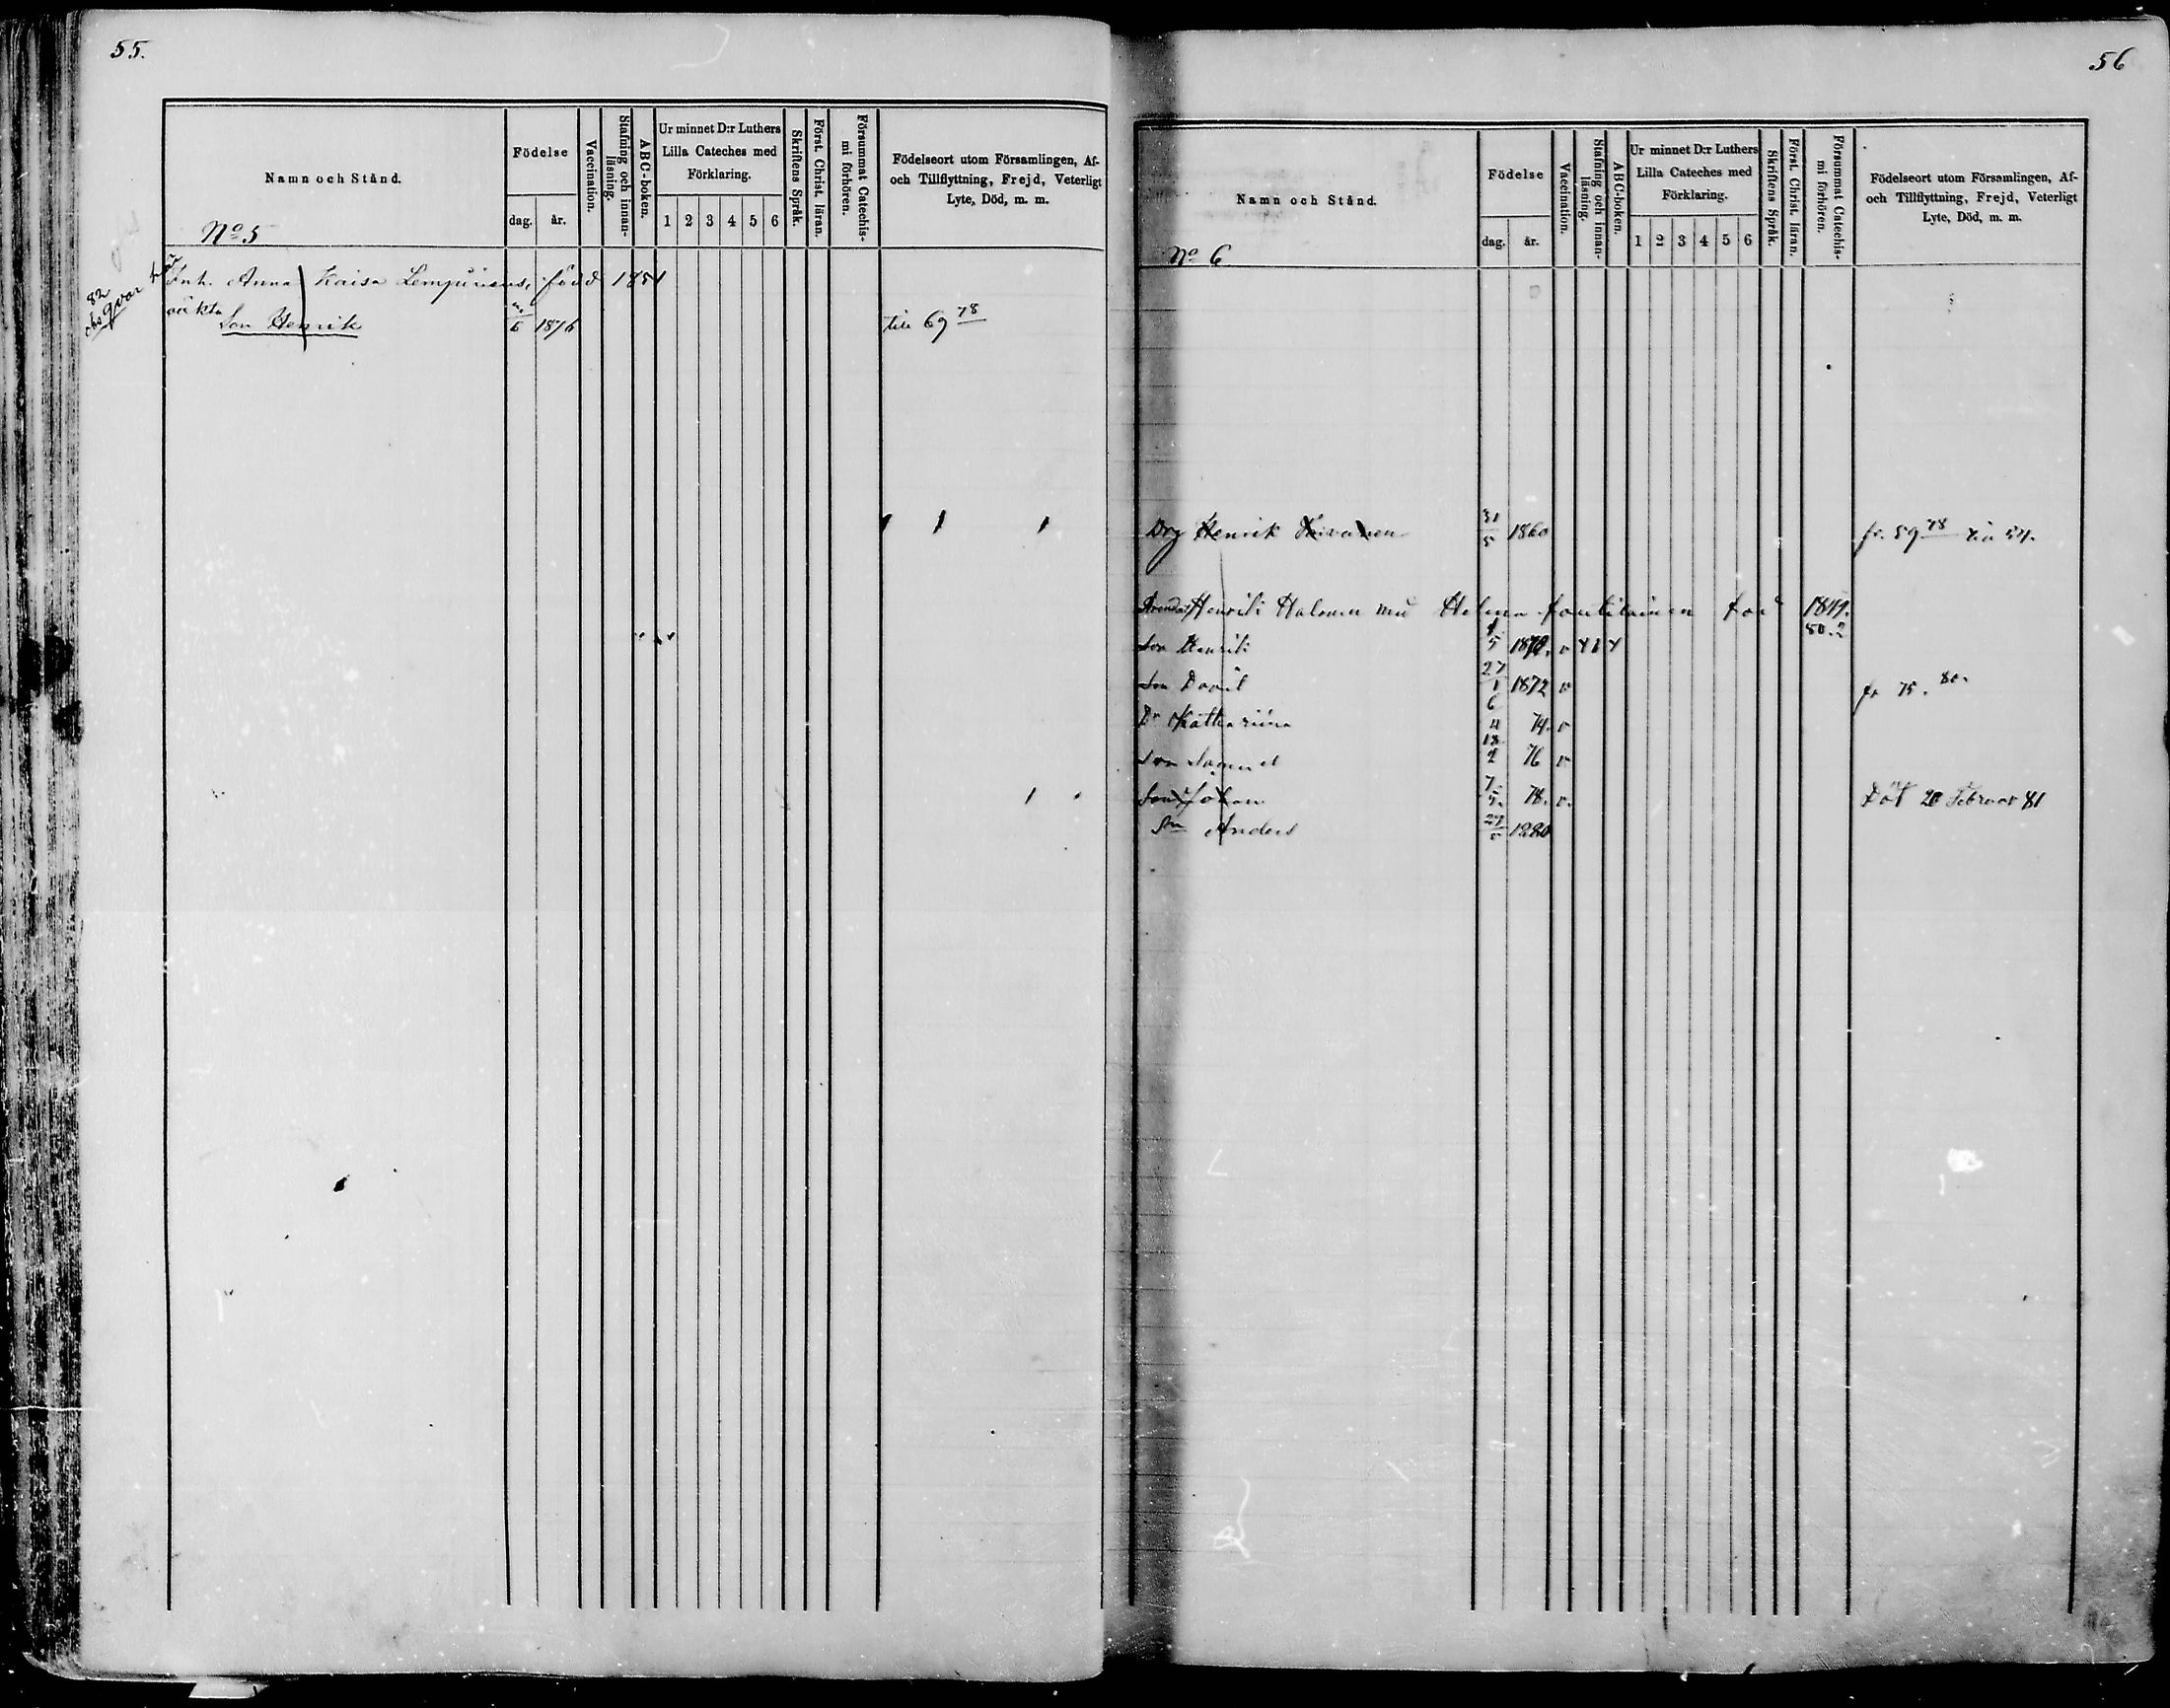 55.
Namn och Stånd.
Födelse
dag.
år.
Vaccination.
Stafning och innan-
läsning.
ABC-boken.
Ur minnet D:r Luthers
Lilla Cateches med
Förklaring.
1 2 3 4 5 6
Skriftens Språk.
Först. Christ. läran.
Försummat Catechis-
mi förhören.
Födelseort utom Församlingen, Af-
och Tillflyttning, Frejd, Veterligt
Lyte, Död, m. m.
No 5
Inh. Anna Kaisa född 1851
82
oäkta
Son Henrik 6 1876 till 69 78
56
Namn och Stånd.
Födelse
dag.
år.
Vaccination.
Stafning och innan-
läsning.
ABC-boken.
Ur minnet D:r Luthers
Lilla Cateches med
Förklaring.
1 2 3 4 5 6
Skriftens Språk.
Först. Christ. läran.
Försummat Catechis-
mi förhören.
Födelseort utom Församlingen, Af-
och Tillflyttning, Frejd, Veterligt
Lyte, Död, m. m.
No 6
Drg Henrik 31/5 1860 fr. 59 78 54.
Henrik Halonen
80.2
Son Henrik 5 v
Son David 27/1 1872 v fr 75. 80.
Dr Kathariina 6/4 74. v
Son Samuel 18 76 v
Son Johan 7/5. 78. v. Död 20 Februar 81
Sn Anders 27 1880